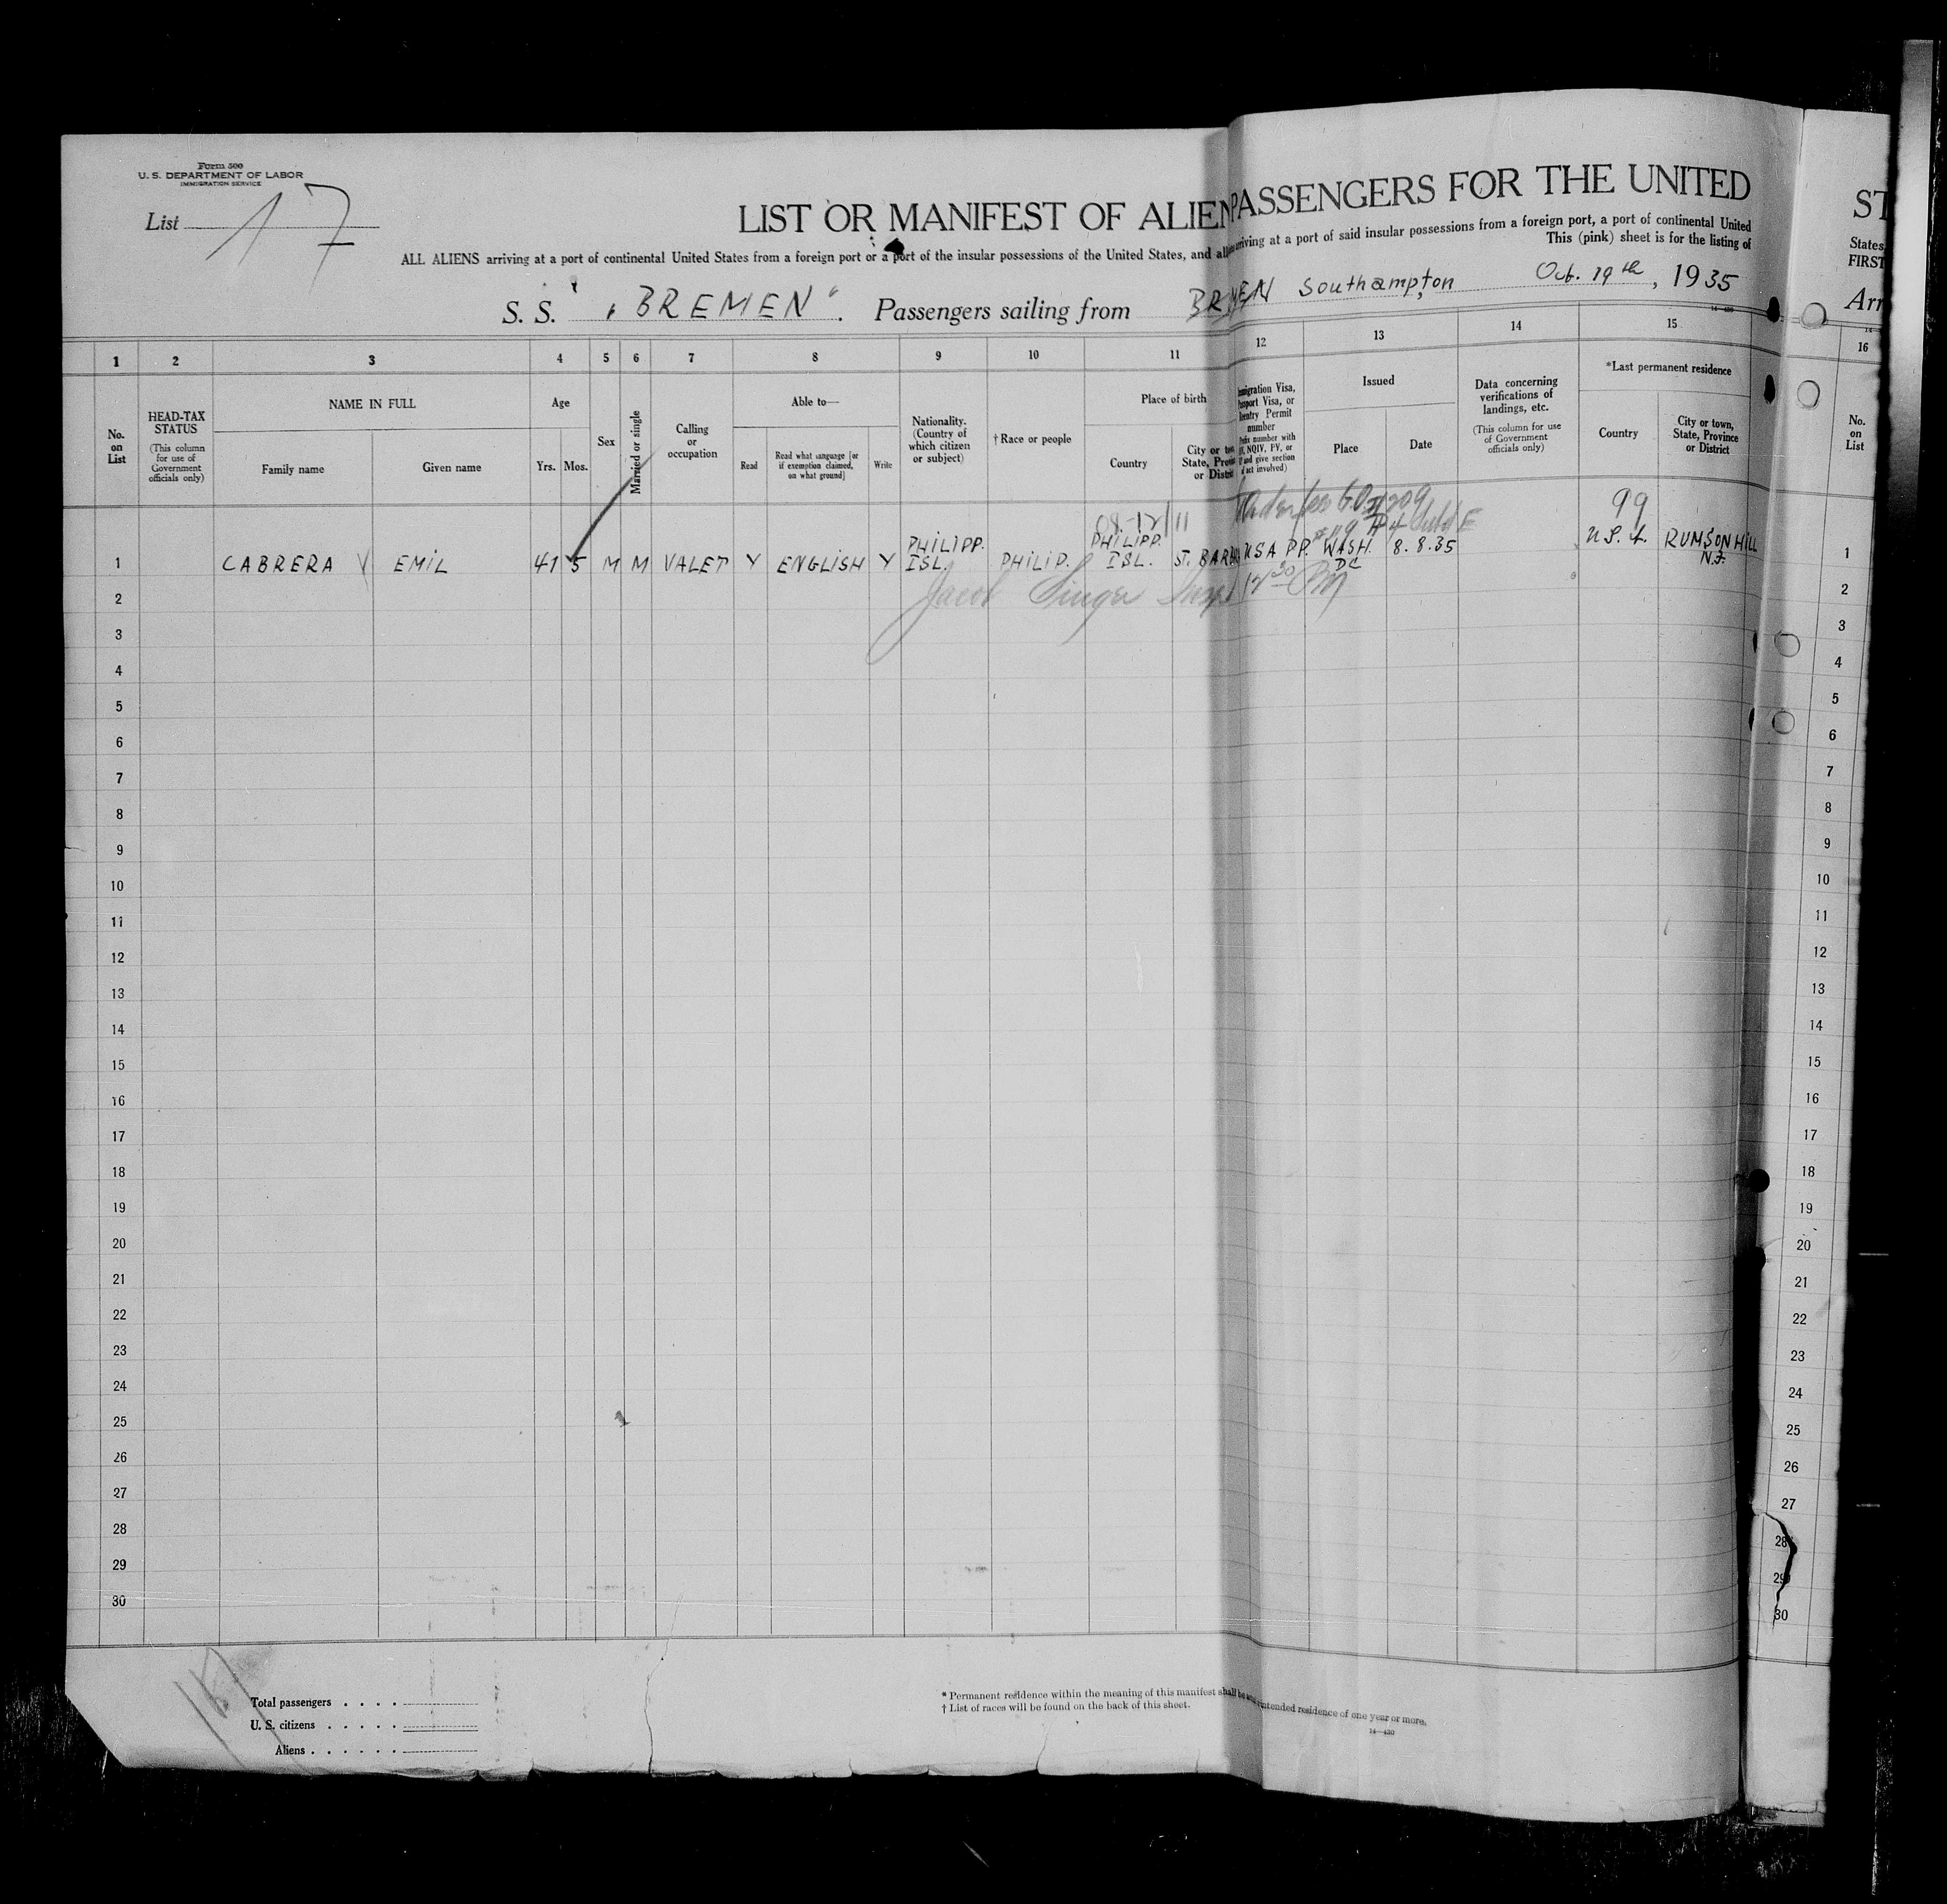 Form 500
U. S. DEPARTMENT OF LABOR
IMMIGRATION SERVICE
List 17
LIST OR MANIFEST OF ALIEN PASSENGERS FOR THE UNITED
ST
ALL ALIENS arriving at a port of continental United States from a foreign port or a port of the insular possessions of the United States, and all arriving at a port of said insular possessions from a foreign port, a port of continental United
States
This (pink) sheet is for the listing of
FIRST
S. S. "BREMEN". Passengers sailing from BREMEN Southampton Oct. 19th, 1935
Arr
1 2 3 4 5 6 7 8 9 10 11 12 13 14 15 16
No. on List
HEAD-TAX STATUS
(This column for use of Government officials only)
NAME IN FULL
Family name
Given name
Age
Yrs. Mos.
Sex
Married or single
Calling or occupation
Able to—
Read
Read what language [or if exemption claimed, on what ground]
Write
Nationality. (Country of which citizen or subject)
† Race or people
Place of birth
Country
City or
State,
or
Visa,
Visa, or
Permit
number
number with
NQIV, PV, or
and give section
act involved)
Issued
Place
Date
Data concerning verifications of landings, etc.
(This column for use of Government officials only)
*Last permanent residence
Country
City or town, State, Province or District
No. on List
99
1 CABRERA EMIL 41 5 M M VALET Y ENGLISH Y PHILIPP. ISL. PHILIP. PHILIPP. ISL. ST. USA PP. WASH. DC 8.8.35 RUMSON HILL N.J. 1
Jacob Singer
2 2
3 3
4 4
5 5
6 6
7 7
8 8
9 9
10 10
11 11
12 12
13 13
14 14
15 15
16 16
17 17
18 18
19 19
20 20
21 21
22 22
23 23
24 24
25 25
26 26
27 27
28 28
29 29
30 30
Total passengers . . . .
U. S. citizens . . . . .
Aliens . . . . . .
* Permanent residence within the meaning of this manifest shall be intended residence of one year or more.
† List of races will be found on the back of this sheet.
14—430